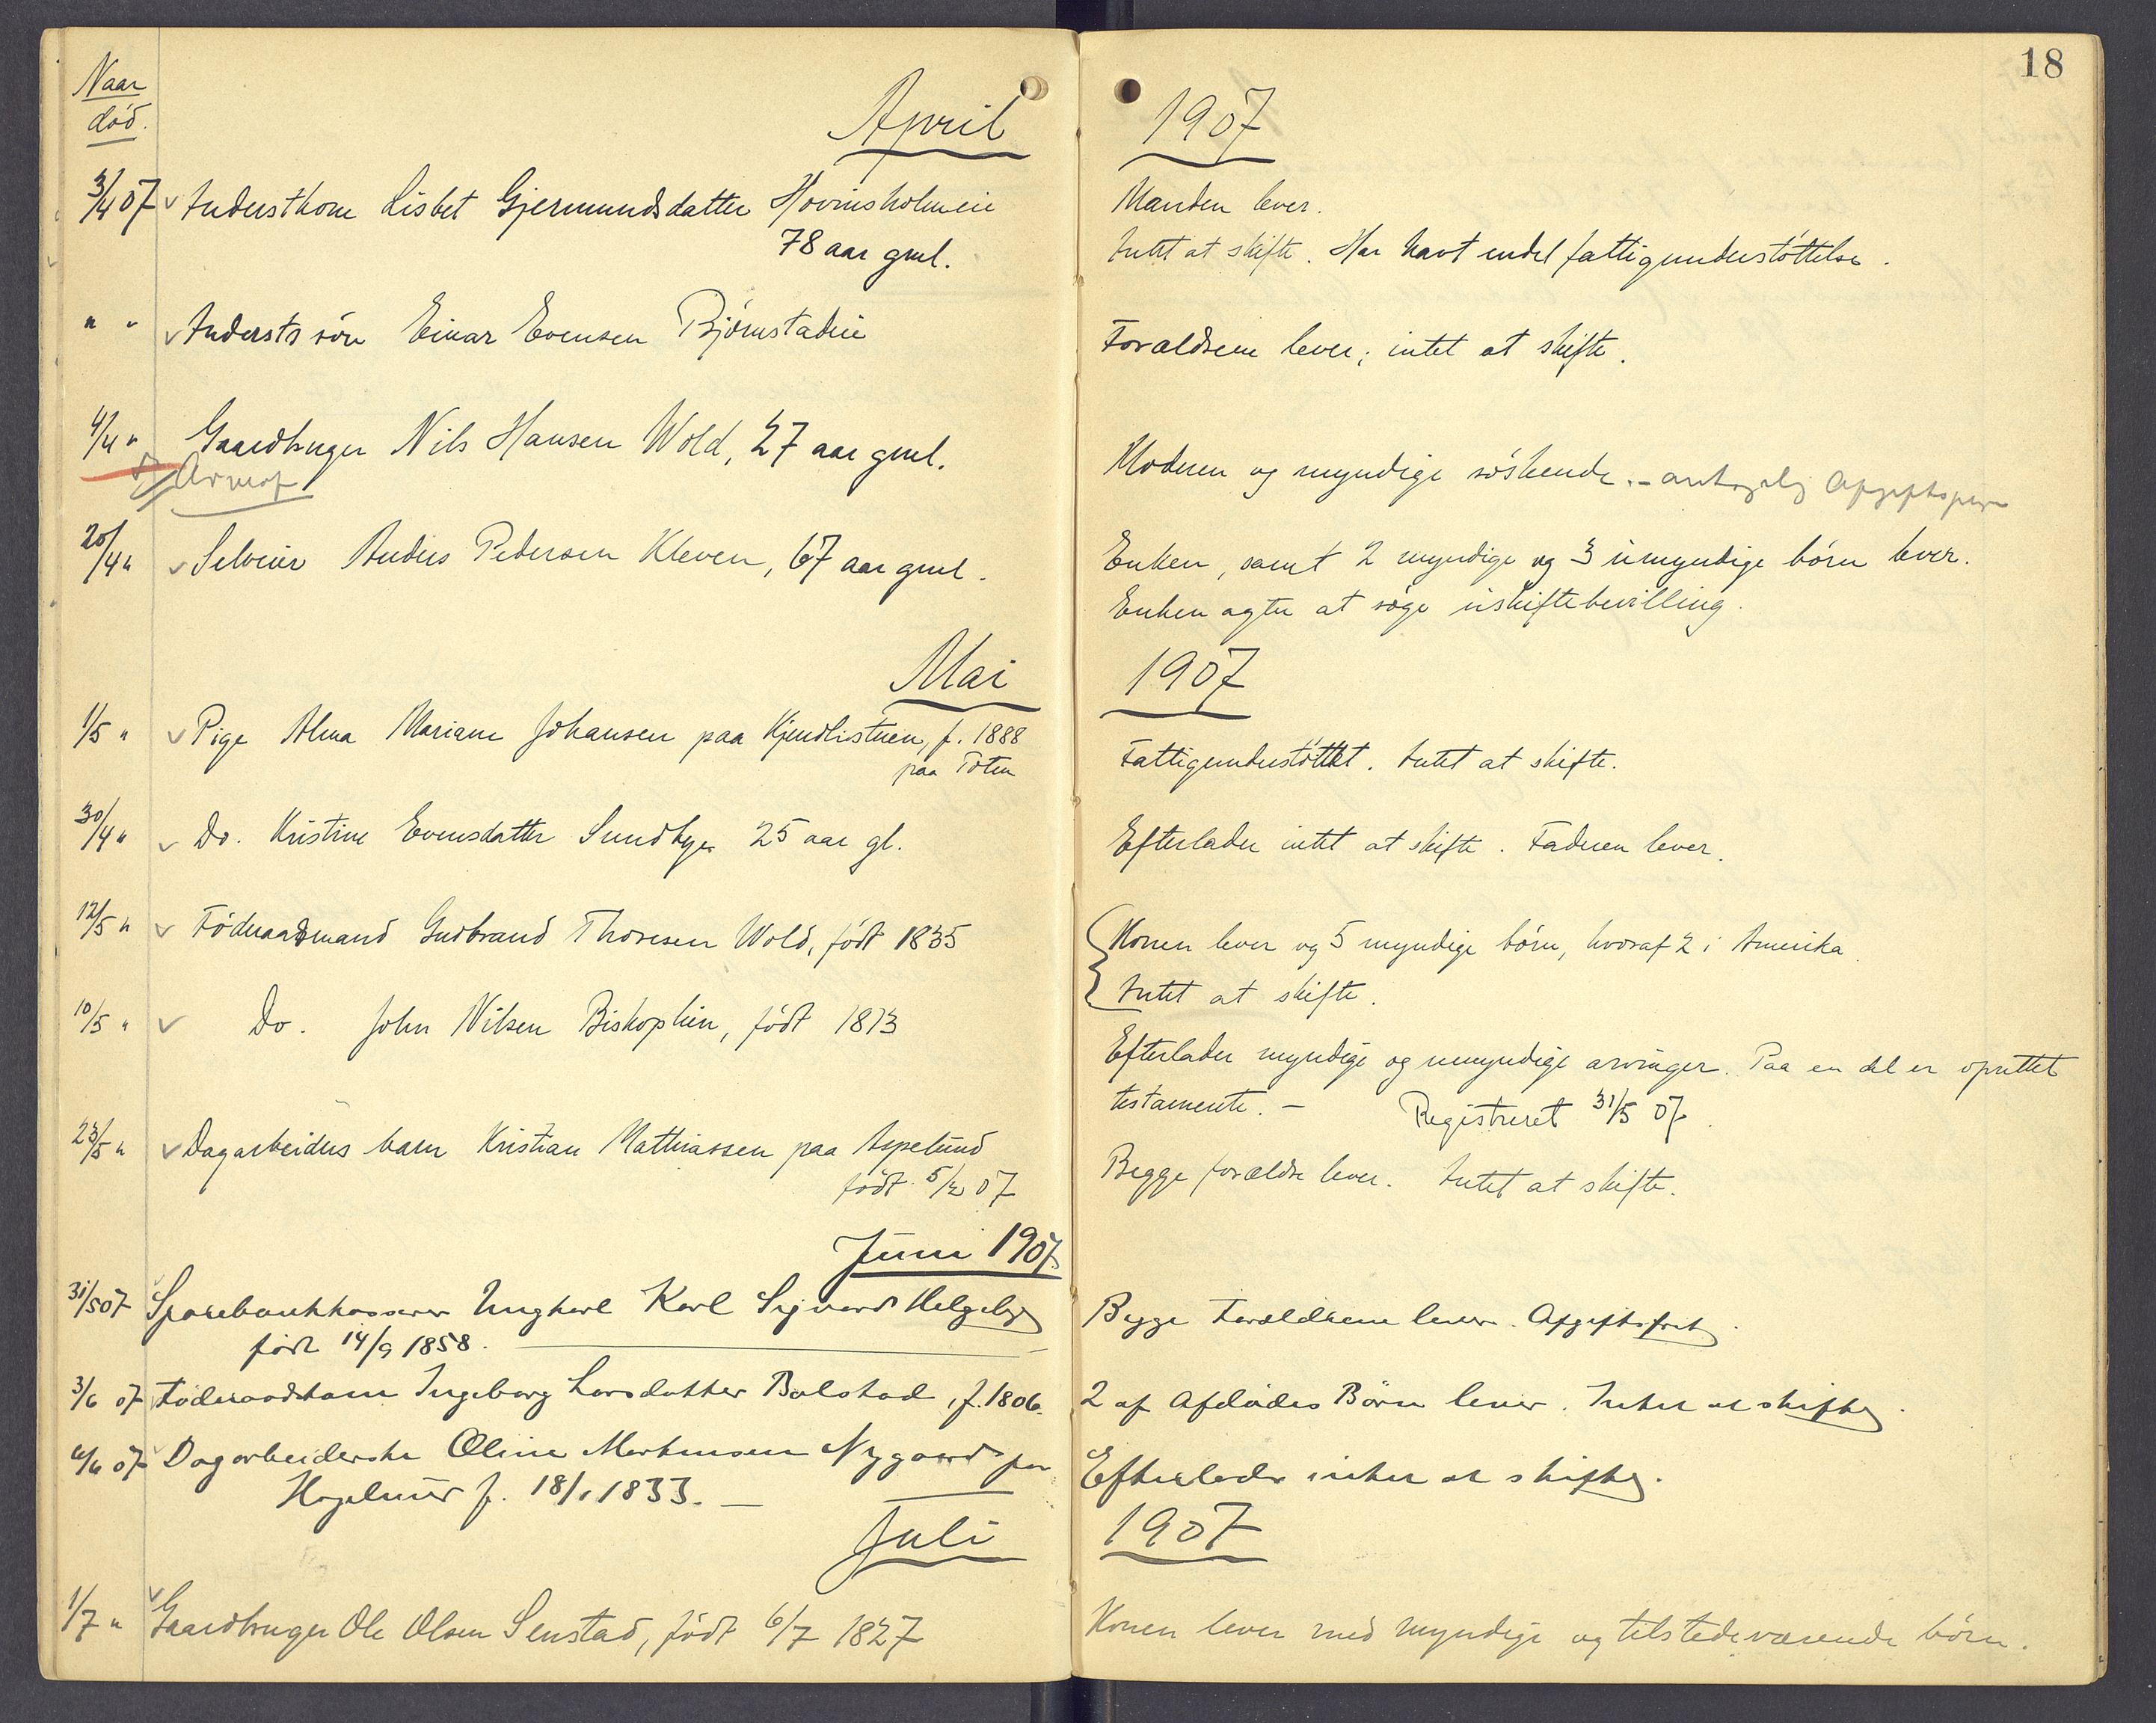 18
Naar
död.
April 1907
3/4 07 Inderstkone Lisbet Gjermundsdatter Hovinsholmeie
78 aar gml.
Manden lever.
Intet at skifte. Har havt endel fattigunderstöttelse.
" " Indersts sön Einar Evensen Björnstadeie
Forældrene lever; intet at skifte.
4/4 " Gaardbruger Nils Hansen Wold, 27 aar gml.
Moderen og myndige söskende. - antagelig
20/4 " Selveier Anders Pedersen Kleven, 67 aar gml.
Enken, samt 2 myndige og 3 umyndige börn lever.
Enken agter at söge uskiftebevilling.
Mai 1907
1/5 " Pige Alma Mariane Johansen paa Kjendlistuen, f. 1888
paa Toten
Fattigunderstöttet. Intet at skifte.
30/4 " Do. Kristine Evensdatter Sundbye 25 aar gl.
Efterlader intet at skifte. Faderen lever.
12/5 " Föderaadmand Gudbrand Thoresen Wold, födt 1835
Konen lever og 5 myndige börn, hvoraf 2 i Amerika.
Intet at skifte.
10/5 " Do. John Nilsen Bisköplien, födt 1813
Efterlader myndige og umyndige arvinger. Paa en del er oprettet
testamente. - Registreret 31/5 07.
23/5 " Dagarbeiders barn Kristian Mathiassen paa Aspelund
födt 5/2 07
Begge forældre lever. Intet at skifte.
Juni 1907
31/5 07 Sparebankkasserer Ungkarl Karl Sigvard Helgeby
född 14/9 1858.
Begge Forældrene lever. Afgiftsfrit.
3/6 07 Föderaadskone Ingeborg Larsdatter Bolstad, f. 1806.
2 af Afdödes Börn lever. Intet at skifte.
6/6 07 Dagarbeiderske Oline Mortensen Nygaard paa
f. 18/1 1833. -
Efterlader intet at skifte.
Juli 1907
1/7 " Gaardbruger Ole Olsen Senstad, födt 6/7 1827
Konen lever med myndige og tilstedeværende börn.